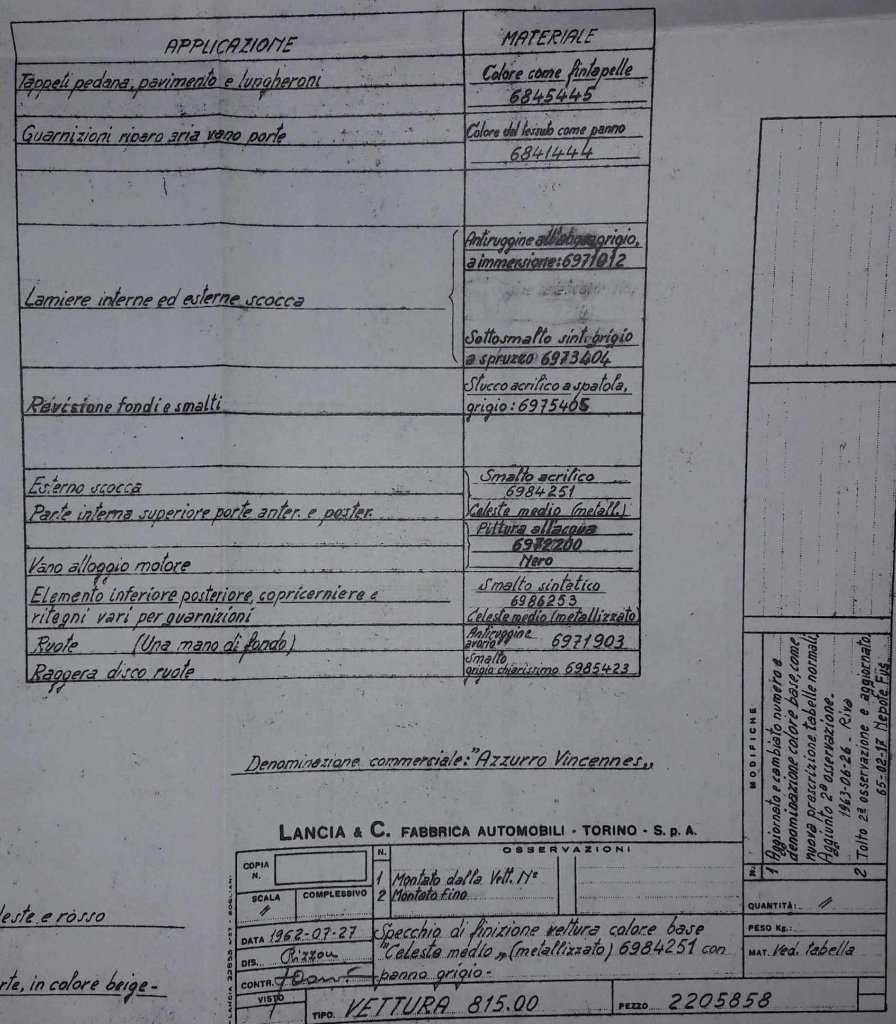 APPLICAZIONE
MATERIALE
Tappeti pedana, pavimento e lungheroni
Colore come fintapelle
6845445
Guarnizioni riparo aria vano porte
Colore del tessuto come panno
6841444
Lamiere interne ed esterne scocca
Antiruggine grigio,
a immersione: 6971012
Sottosmalto sint. grigio
a spruzzo 6973404
Revisione fondi e smalti
Stucco acrilico a spatola,
grigio: 6975405
Esterno scocca
Parte interna superiore porte anter. e poster.
Smalto acrilico
6984251
Celeste medio (metall.)
Vano alloggio motore
Pittura all'acqua
6972200
Nero
Elemento inferiore posteriore, copricerniere e
ritegni vari per guarnizioni
Smalto sintetico
6986253
Celeste medio (metallizzato)
Ruote (Una mano di fondo)
Antiruggine
avorio 6971903
Raggera disco ruote
Smalto
grigio chiarissimo 6985423
Denominazione commerciale: "Azzurro Vincennes„
LANCIA & C. FABBRICA AUTOMOBILI - TORINO - S. p. A.
COPIA
N.
SCALA
//
COMPLESSIVO
N.
OSSERVAZIONI
1 Montato dalla Vett. Nº
2 Montato fino
DATA 1962-07-27
DIS. Rizzou
CONTR.
VISTO
Specchio di finizione vettura colore base
"Celeste medio„ (metallizzato) 6984251 con
panno grigio -
TIPO. VETTURA 815.00
PEZZO 2205858
QUANTITÀ: //
PESO Kg.:
MAT. Ved. tabella
MODIFICHE
N.
1 Aggiornato e cambiato numero e
denominazione colore base, come
nuova prescrizione tabelle normali,
Aggiunto 2ª osservazione.
1963-06-26 - Riva
2 Tolto 2ª osservazione e aggiornato
65-02-17 Nepote Fus
leste e rosso
rte, in colore beige -